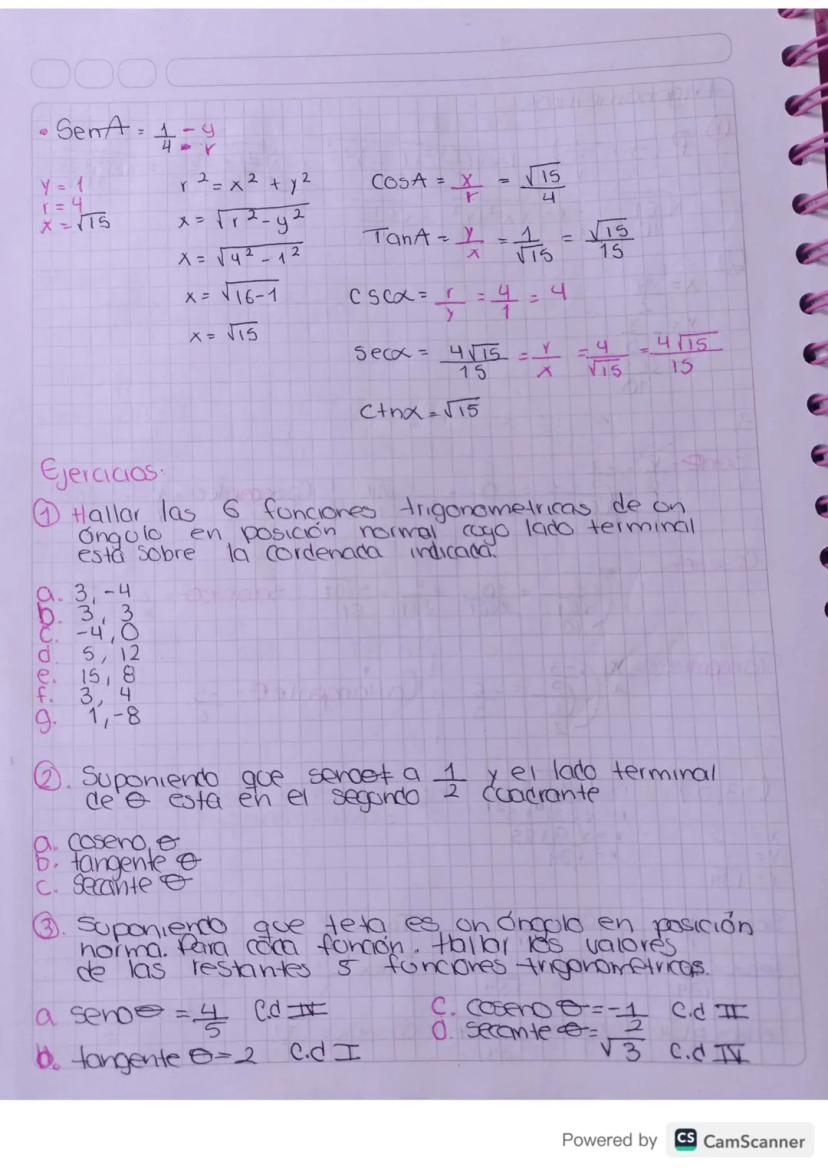 • SenA = 1/4 - y/r
y = 1
r = 4
x = √15
r² = x² + y²
x = √r² - y²
x = √4² - 1²
x = √16-1
x = √15
CosA = x/r = √15/4
TanA = y/x = 1/√15 = √15/15
cscα = r/y = 4/1 = 4
secα = 4√15/15 = r/x = 4/√15 = 4√15/15
ctnα = √15
Ejercicios:
① Hallar las 6 funciones trigonometricas de un
ángulo en posición normal cuyo lado terminal
está sobre la cordenada indicada.
a. 3, -4
b. 3, 3
c. -4, 0
d. 5, 12
e. 15, 8
f. 3, 4
g. 1, -8
②. Suponiendo que a 1/2 y el lado terminal
de θ esta en el segundo cuadrante
a. coseno θ
b. tangente θ
c. secante θ
③. Suponiendo que teta es un ángulo en posición
norma. Para cada función. Hallar los valores
de las restantes 5 funciones trigonometricas.
a seno θ = 4/5 C.d IV
b. tangente θ = 2 C.d I
c. coseno θ = -1/2 C.d II
d. secante θ = √3 C.d IV
Powered by CS CamScanner